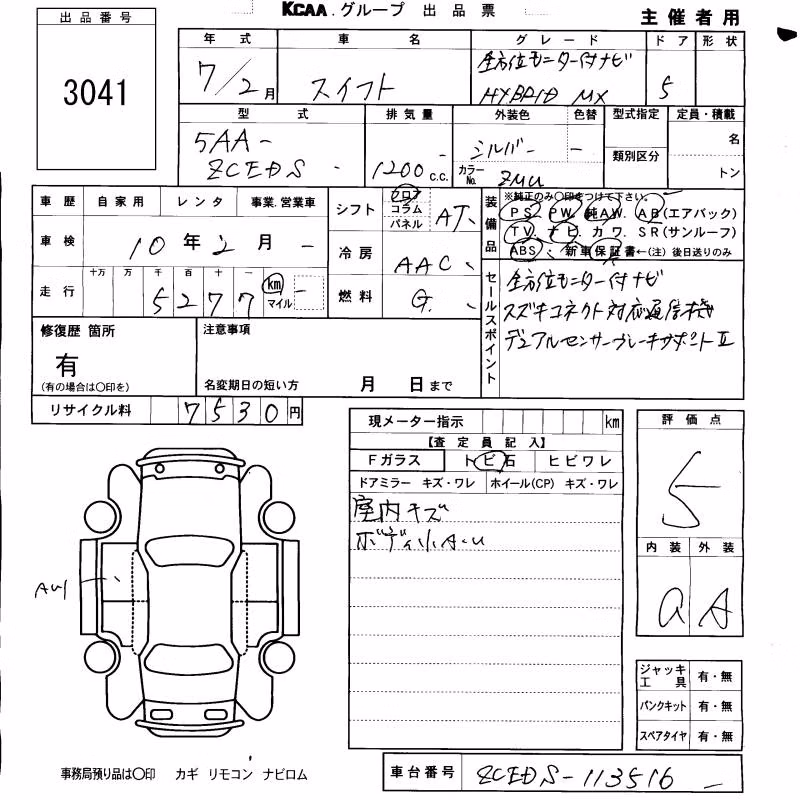 KCAA. グループ 出品票
主催者用
出品番号
3041
年式 車名 グレード ドア 形状
7/2月 スイフト 全方位モニター付ナビ HYBRID MX 5
型式 排気量 外装色 色替 型式指定 定員・積載
5AA- ZCEDS 1200 c.c. シルバー - 類別区分 名
カラーNo. ZMU トン
車歴 自家用 レンタ 事業.営業車
車検 10年2月
走行 十万 万 千 百 十 一 km マイル
5277
シフト フロア コラム パネル AT
冷房 AAC
燃料 G
装備品 ※純正のみ〇印をつけて下さい。
PS. PW. 純AW. AB(エアバッグ)
TV. ナビ. カワ. SR(サンルーフ)
ABS. 新車保証書←(注)後日送りのみ
セールスポイント
全方位モニター付ナビ
スズキコネクト対応通信機
デュアルセンサーブレーキサポートⅡ
修復歴 箇所
有
(有の場合は〇印を)
注意事項
名変期日の短い方 月 日まで
リサイクル料 7530円
現メーター指示 km
【査定員記入】
Fガラス トビ石 ヒビワレ
ドアミラー キズ・ワレ ホイール(CP) キズ・ワレ
室内キズ
ボディ小A.U
評価点
5
内装 外装
a A
AU1
ジャッキ工具 有・無
パンクキット 有・無
スペアタイヤ 有・無
事務局預り品は〇印 カギ リモコン ナビロム
車台番号 ZCEDS-113516